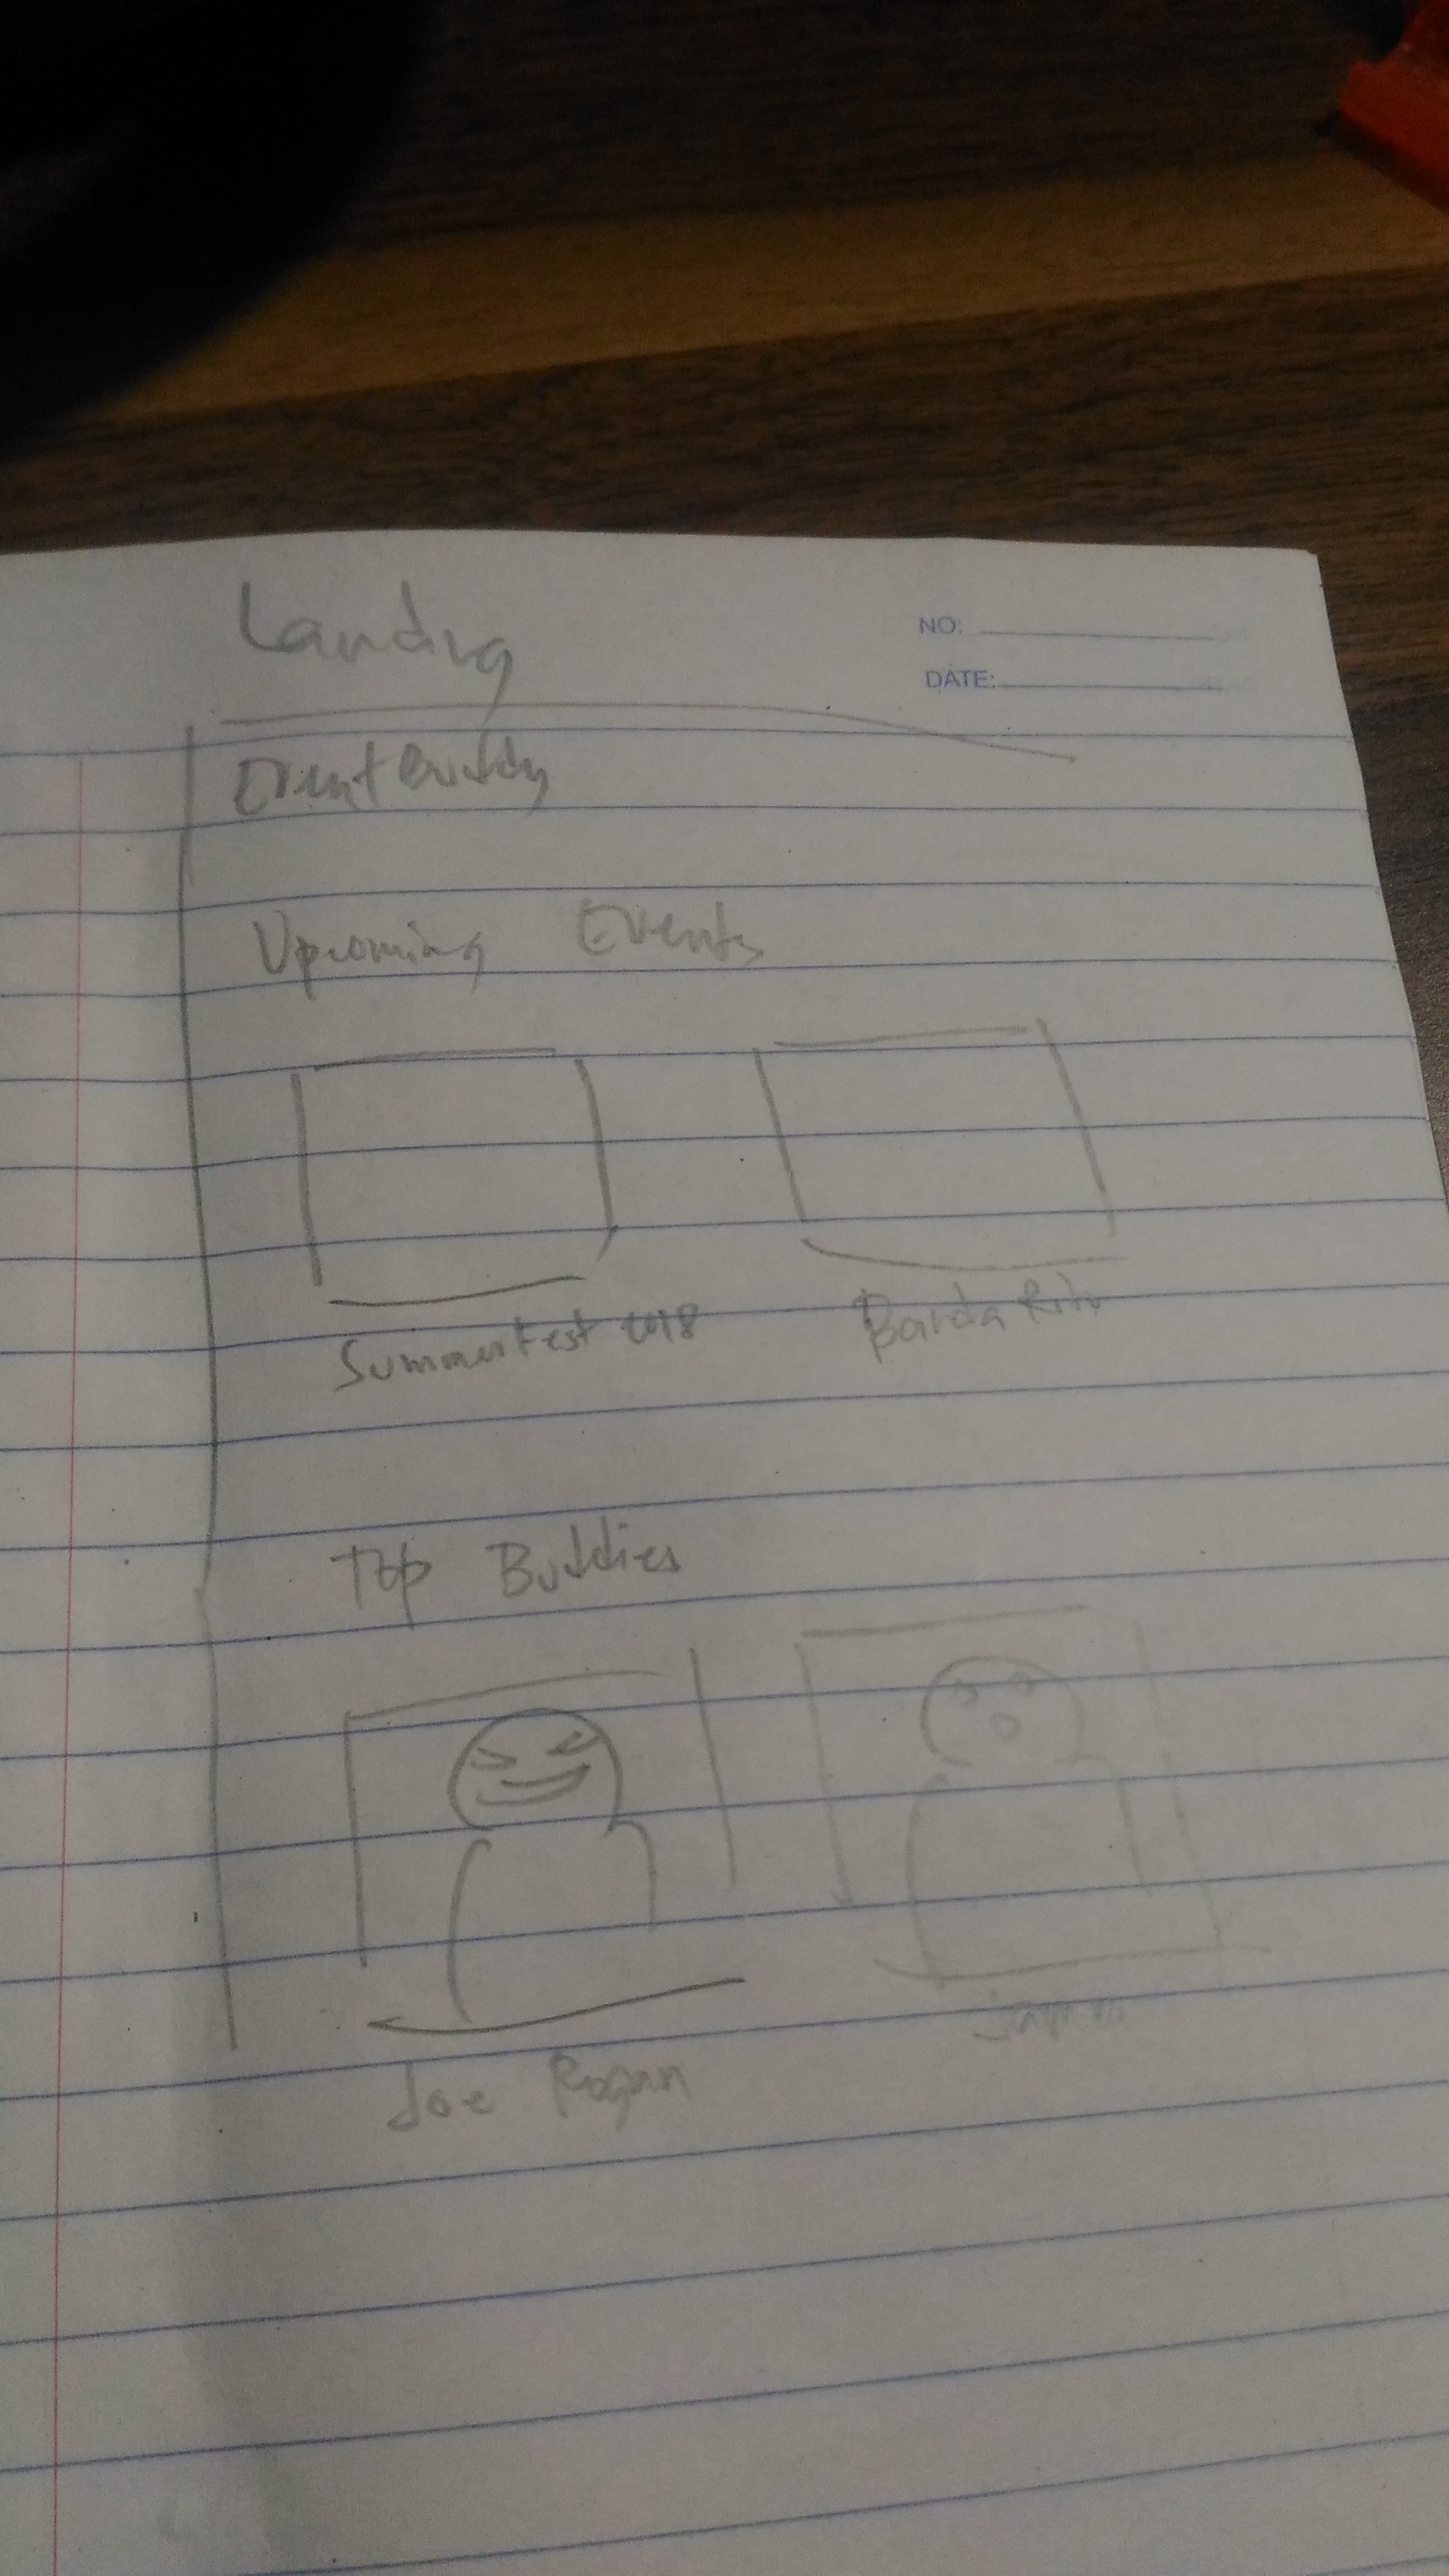 Landing
NO:
DATE:
Event Buddy
Upcoming Events
Summer Fest 2018
Banda
Top Buddies
Joe Rogan